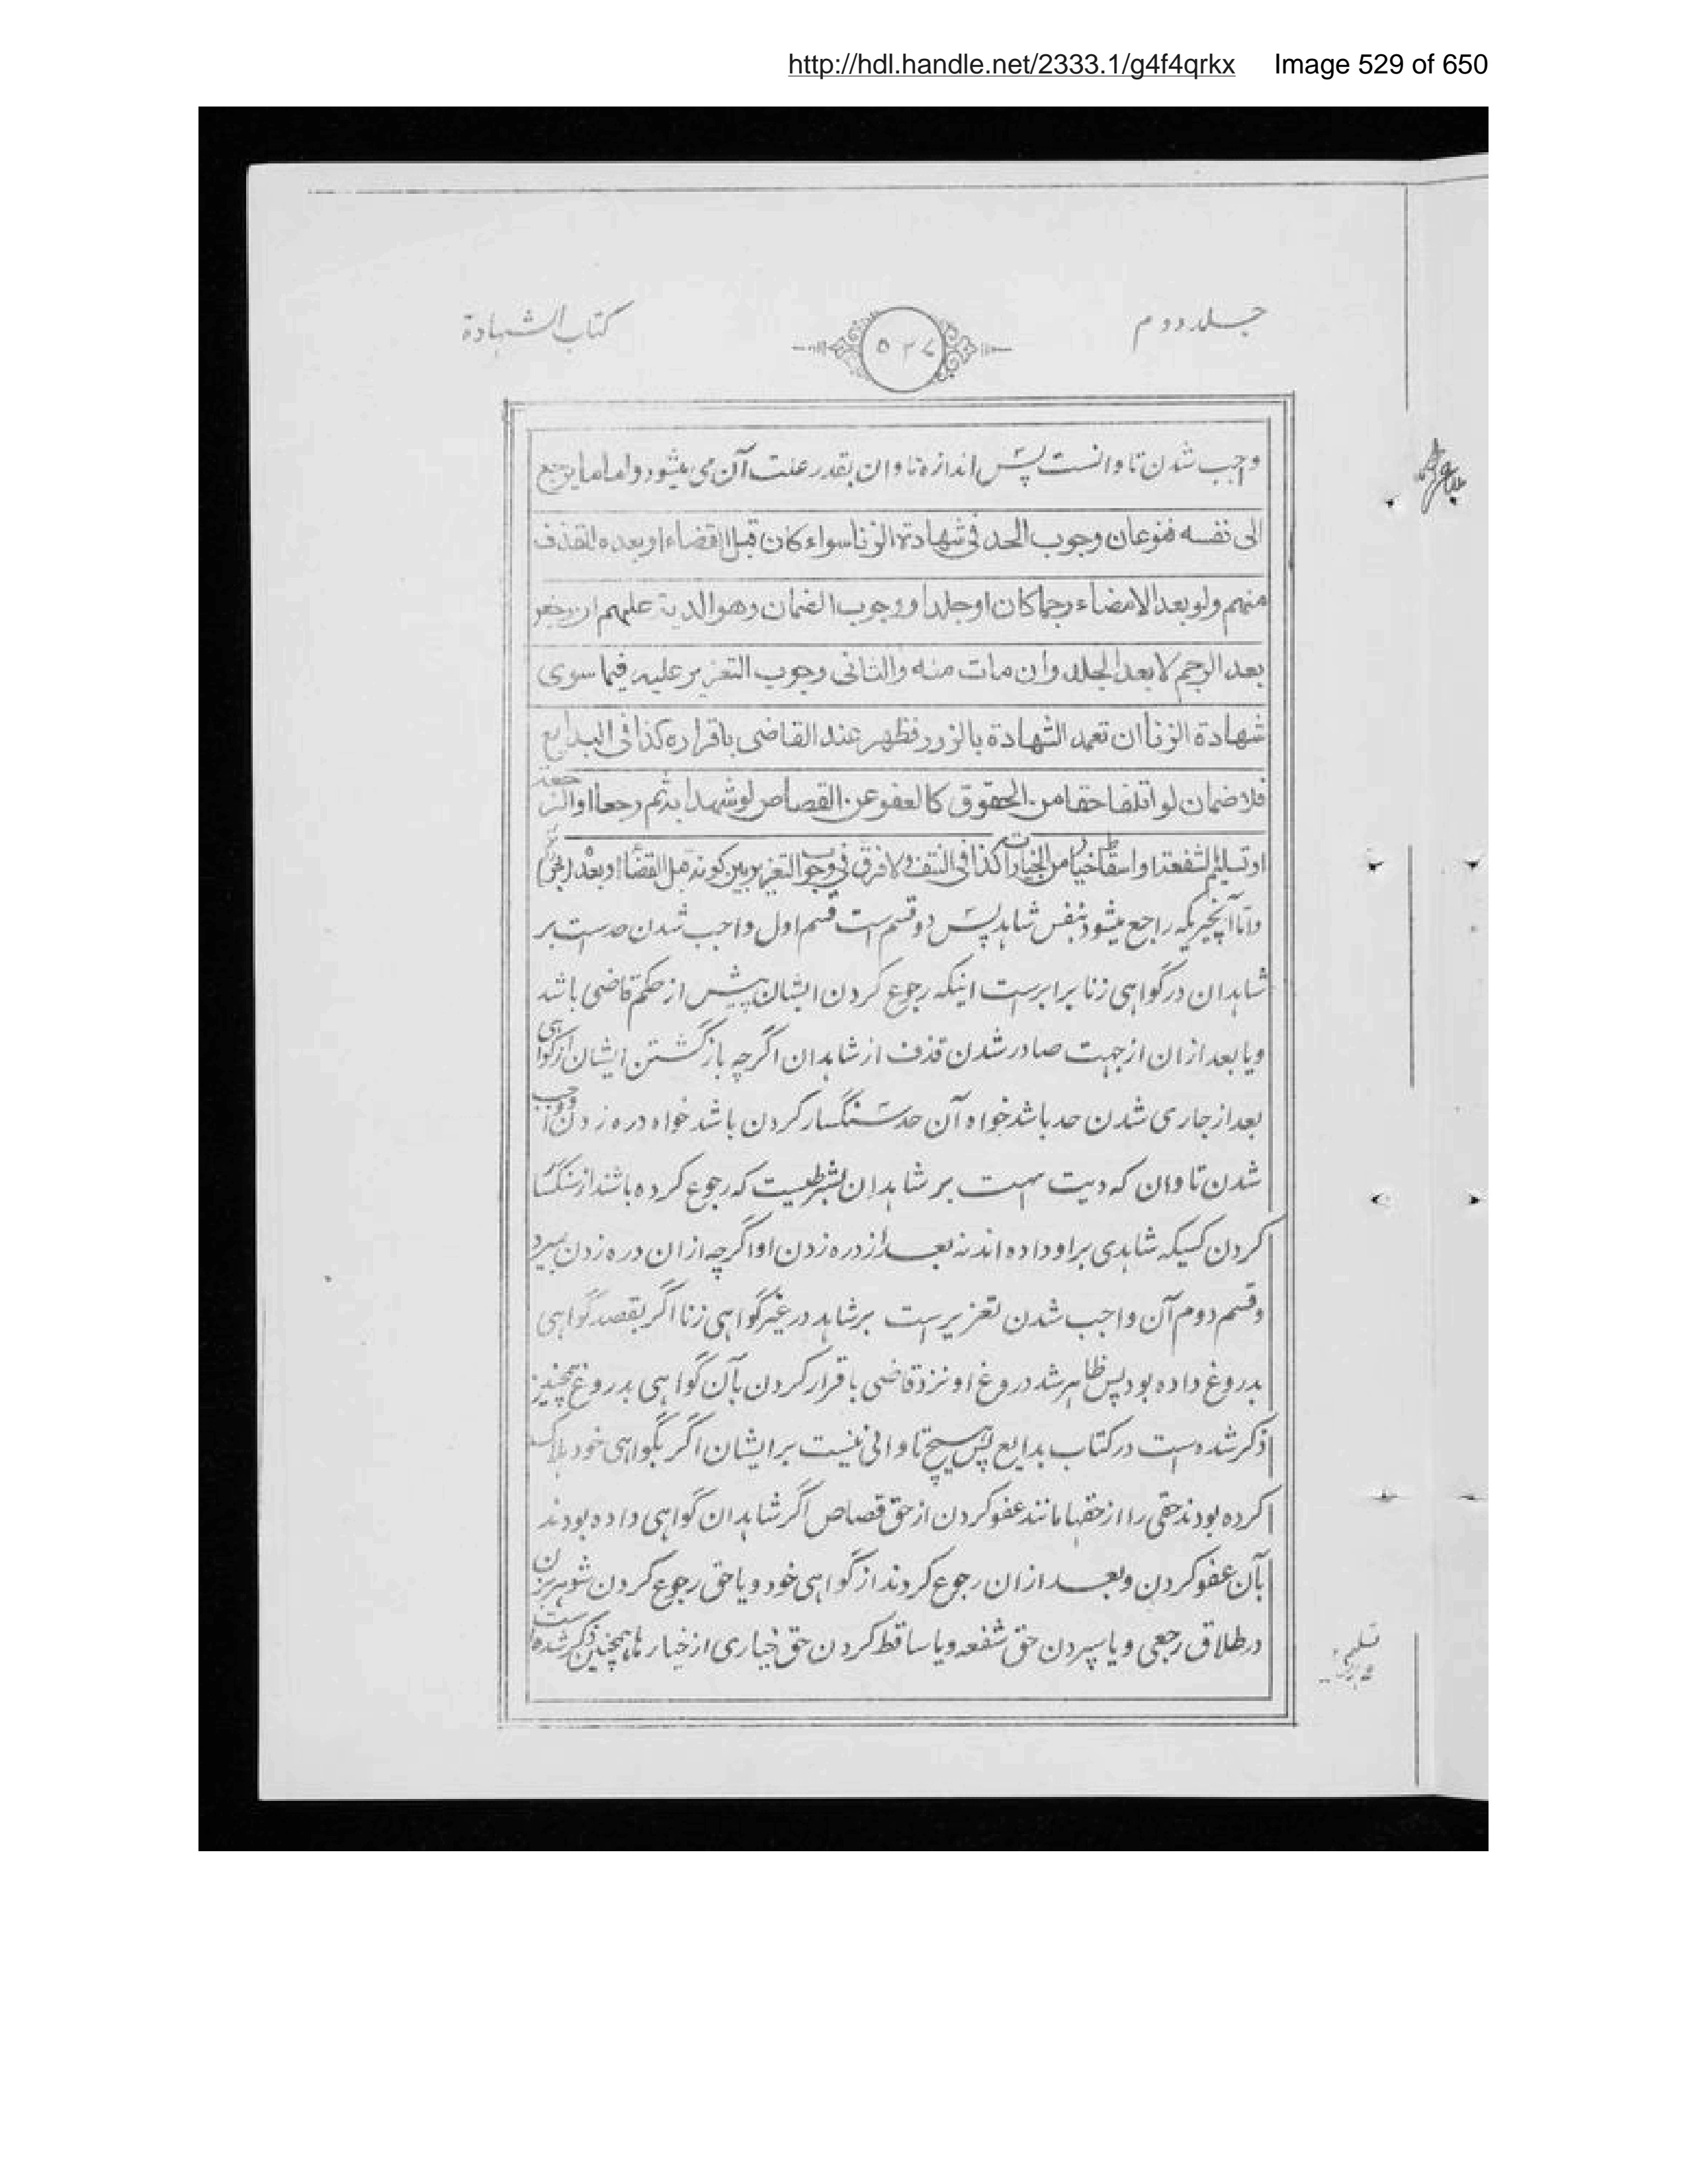 http://hdl.handle.net/2333.1/g4f4qrkx Image 529 of 650
جلد دوم
۵۲۷
کتاب الشهادة
واجب شدن تاوانست پس اندازه تاوان بقدر علت آن می میشود واما ما يرجع
الى نفسه فنوعان وجوب الحد فى شهادة الزنا سواء كان قبل القضاء او بعده للقذف
منهم ولو بعد الامضاء رجما كان او جلدا ووجوب الضمان وهو الدية عليهم ان رجعوا
بعد الرجم لا بعد الجلد وان مات منه والثانى وجوب التعزير عليه فيما سوى
شهادة الزنا ان تعمد الشهادة بالزور فظهر عند القاضى باقراره كذا فى البدايع
فلا ضمان لو اتلفا حقا من الحقوق كالعفو عن القصاص لو شهدا به ثم رجعا او الرجعة
او تسليم الشفعة او اسقاط خيار من الخيارات كذا فى النتف ولا فرق فى وجوب التعزير بين كونه قبل القضاء او بعده
واما آنچیزیکه راجع میشود بنفس شاهد پس دو قسم است قسم اول واجب شدن حد است بر
شاهدان در گواهی زنا برابر است اینکه رجوع کردن ایشان پیش از حکم قاضی باشد
ویا بعد ازان از جهت صادر شدن قذف از شاهدان اگرچه بازگشتن ایشان از گواهی
بعد از جاری شدن حد باشد خواه آن حد سنگسار کردن باشد خواه دره زدن و واجب
شدن تاوان که دیت است بر شاهدان بشرطیست که رجوع کرده باشند از سنگسار
کردن کسیکه شاهدی براو داده اند نه بعد از دره زدن او اگرچه ازان دره زدن بمیرد
وقسم دوم آن واجب شدن تعزیر است بر شاهد در غیر گواهی زنا اگر بقصد گواهی
بدروغ داده بود پس ظاهر شد دروغ او نزد قاضی باقرار کردن بآن گواهی بدروغ همچنین
ذکر شده است در کتاب بدایع پس هیچ تاوانی نیست بر ایشان اگر بگواهی خود هلاک
کرده بودند حقی را از حقها مانند عفو کردن از حق قصاص اگر شاهدان گواهی داده بودند
بآن عفو کردن وبعد ازان رجوع کردند از گواهی خود ویا حق رجوع کردن شوهر بزن
در طلاق رجعی ویا سپردن حق شفعه ویا ساقط کردن حق خیاری از خیار ها همچنین ذکر شده است